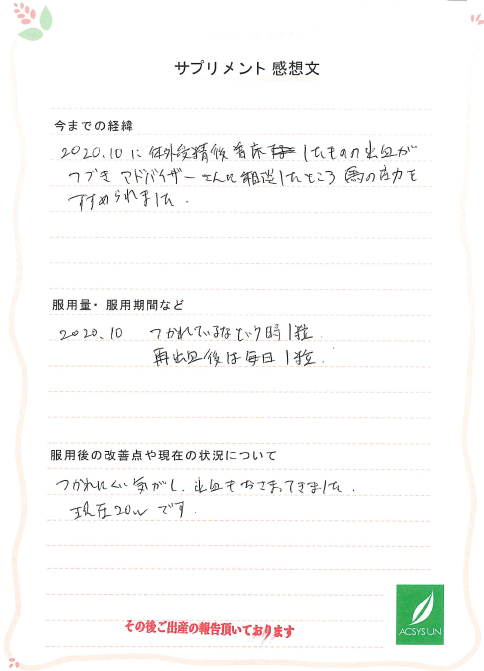 サプリメント 感想文
今までの経緯
2020.10に体外受精後着床したものの出血が
つづき アドバイザーさんに相談したところ 馬の力を
すすめられました.
服用量・服用期間など
2020.10 つかれているなという時1粒.
再出血後は毎日1粒.
服用後の改善点や現在の状況について
つかれにくい気がし、出血もおさまってきました.
現在20wです.
その後ご出産の報告頂いております
ACSYSUN